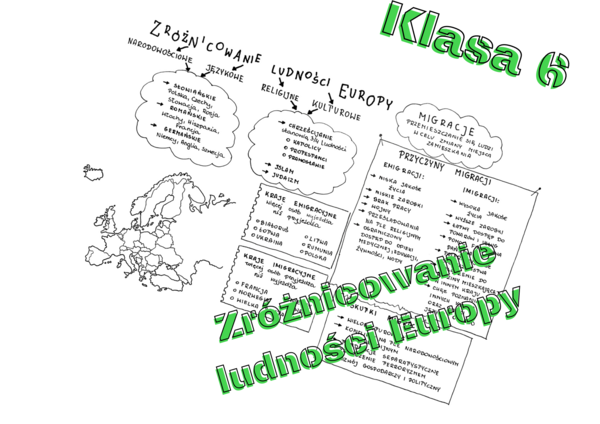 Klasa 6
ZRÓŻNICOWANIE LUDNOŚCI EUROPY
NARODOWOŚCIOWE
JĘZYKOWE
RELIGIJNE
KULTUROWE
→ SŁOWIAŃSKIE
Polska, Czechy,
Słowacja, Rosja
→ ROMAŃSKIE
Włochy, Hiszpania,
Francja
→ GERMAŃSKIE
Niemcy, Anglia, Szwecja
→ CHRZEŚCIJANIE
stanowią 3/4 ludności
○ KATOLICY
○ PROTESTANCI
○ PRAWOSŁAWNI
→ ISLAM
→ JUDAIZM
KRAJE EMIGRACYJNE
więcej osób wyjeżdża
niż przyjeżdża
○ BIAŁORUŚ
○ ŁOTWA
○ UKRAINA
○ LITWA
○ RUMUNIA
○ POLSKA
KRAJE IMIGRACYJNE
więcej osób przyjeżdża,
niż wyjeżdża
○ FRANCJA
○ NORWEGIA
○ WIELKA
MIGRACJE
PRZEMIESZCZANIE SIĘ LUDZI
W CELU ZMIANY MIEJSCA
ZAMIESZKANIA
PRZYCZYNY MIGRACJI
EMIGRACJI:
→ NISKA JAKOŚĆ
ŻYCIA
→ NISKIE ZAROBKI
→ BRAK PRACY
→ WOJNY
→ PRZEŚLADOWANIA
NA TLE RELIGIJNYM
→ OGRANICZONY
DOSTĘP DO OPIEKI
MEDYCZNEJ, EDUKACJI,
ŻYWNOŚCI, WODY
IMIGRACJI:
→ WYSOKA JAKOŚĆ
ŻYCIA
→ WYŻSZE ZAROBKI
→ ŁATWY DOSTĘP DO
Zróżnicowanie
ludności Europy
NA TLE NARODOWOŚCIOWYM
SEPARATYSTYCZNE
TERRORYZMEM
GOSPODARCZY I POLITYCZNY